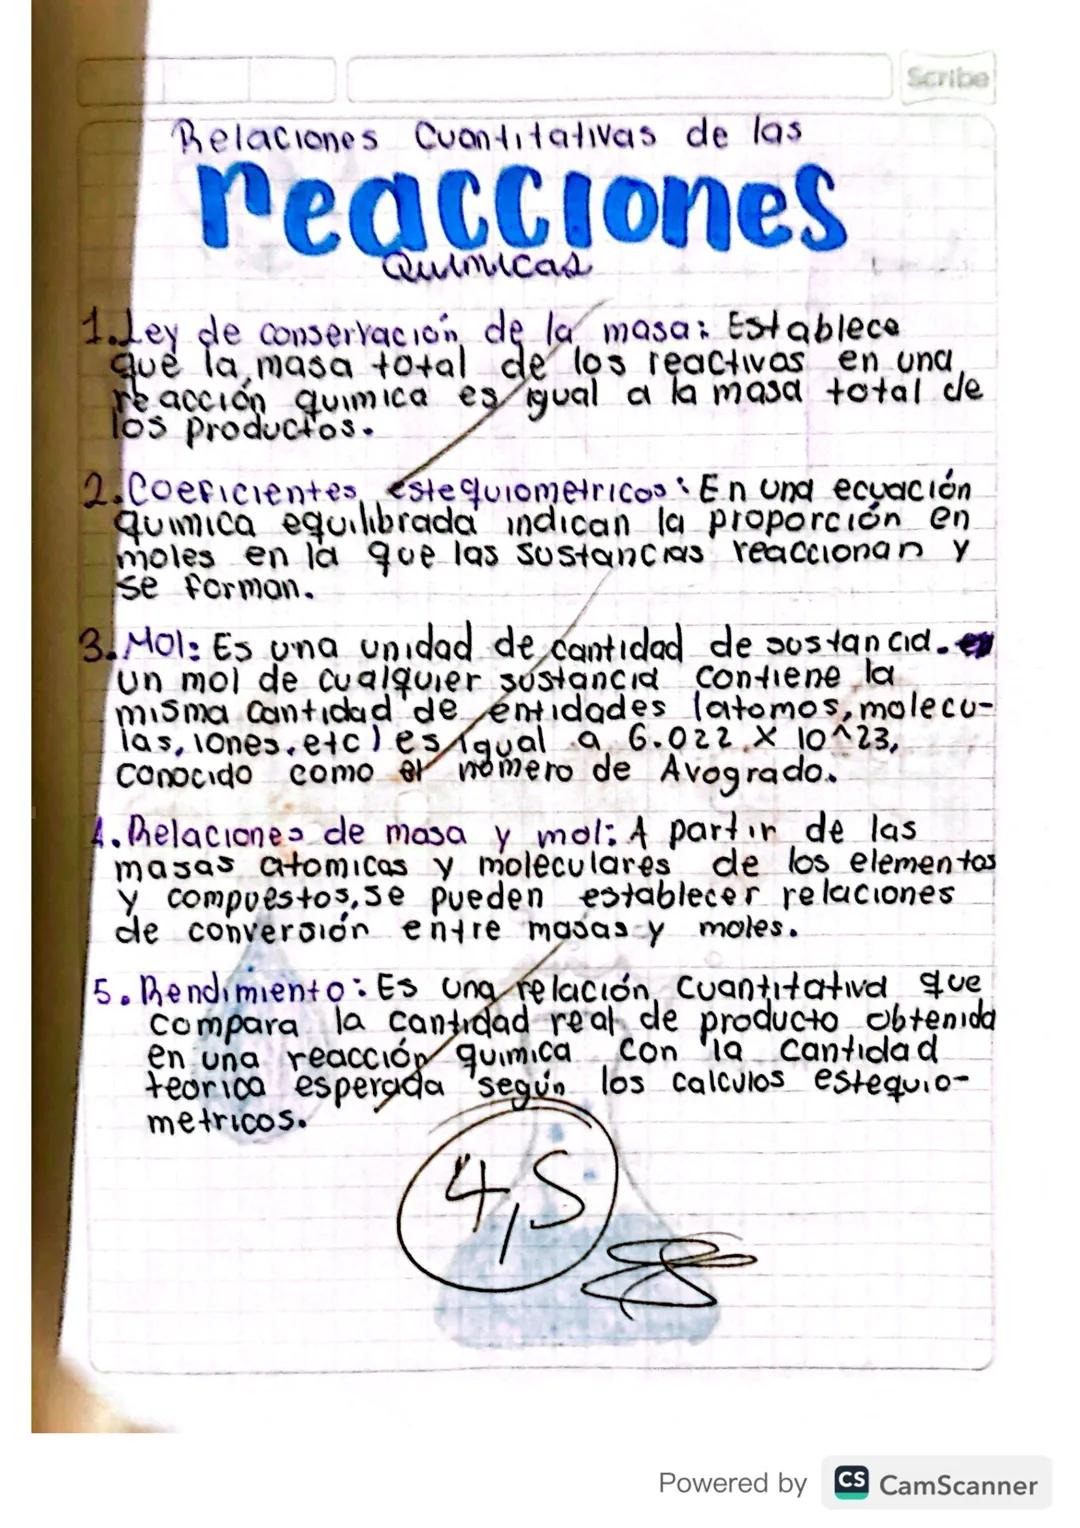 Scribe
Relaciones Cuantitativas de las
reacciones
Quimicas
1. Ley de conservación de la masa: Establece
que la masa total de los reactivos en una
reacción quimica es igual a la masa total de
los productos.
2. Coeficientes estequiometricos: En una ecuación
quimica equilibrada indican la proporción en
moles en la que las sustancias reaccionan y
se forman.
3. Mol: Es una unidad de cantidad de sustancia.
un mol de cualquier sustancia contiene la
misma cantidad de entidades (atomos, molecu-
las, iones, etc) es igual a 6.022 x 10^23,
conocido como el número de Avogrado.
4. Relaciones de masa y mol: A partir de las
masas atomicas y moleculares de los elementos
y compuestos, se pueden establecer relaciones
de conversión entre masas y moles.
5. Rendimiento: Es una relación cuantitativa que
compara la cantidad real de producto obtenida
en una reacción quimica con la cantidad
teorica esperada según los calculos estequio-
metricos.
4,5
Powered by CS CamScanner